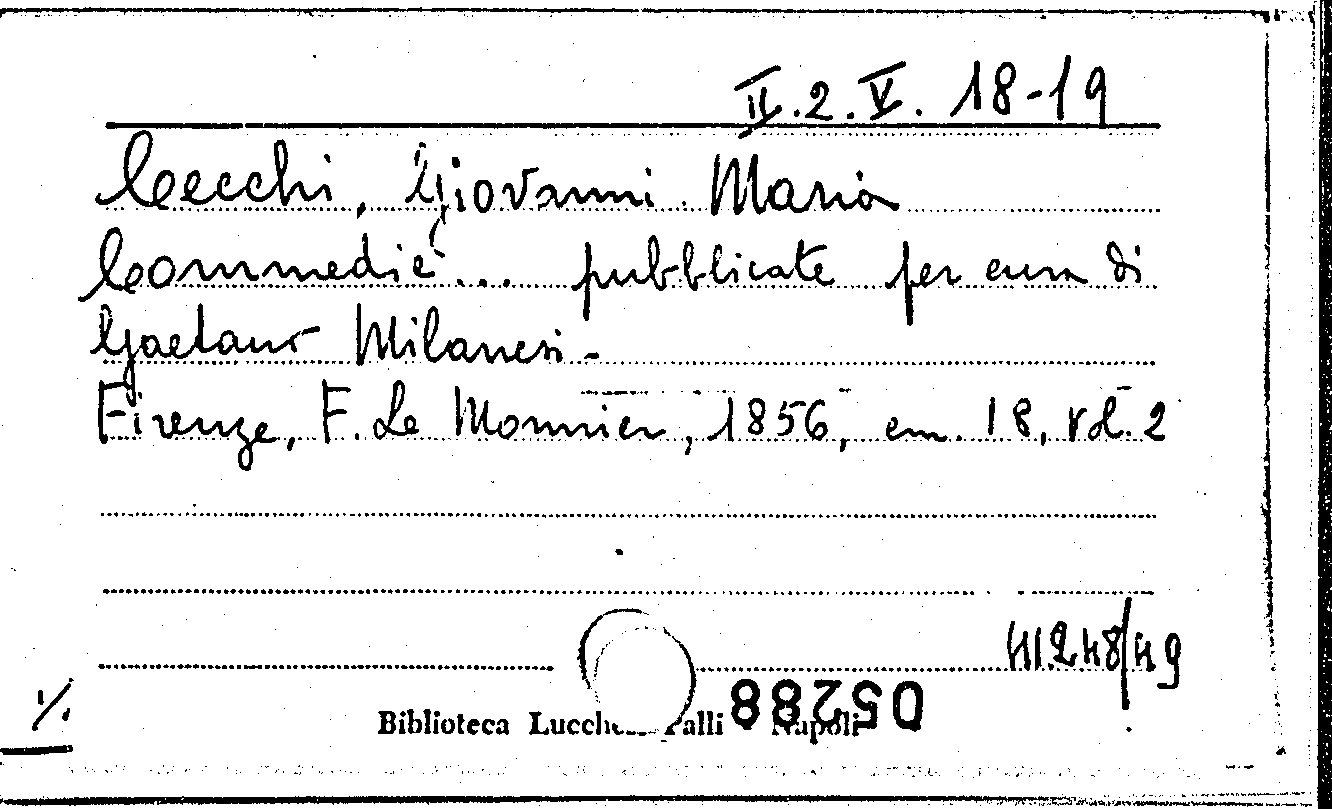 II.2.V. 18-19
Cecchi, Giovanni Maria
Commedie ... pubblicate per cura di
Gaetano Milanesi -
Firenze, F. Le Monnier, 1856, em. 18, vol. 2
41248/49
05288
Biblioteca Lucchesi Palli Napoli